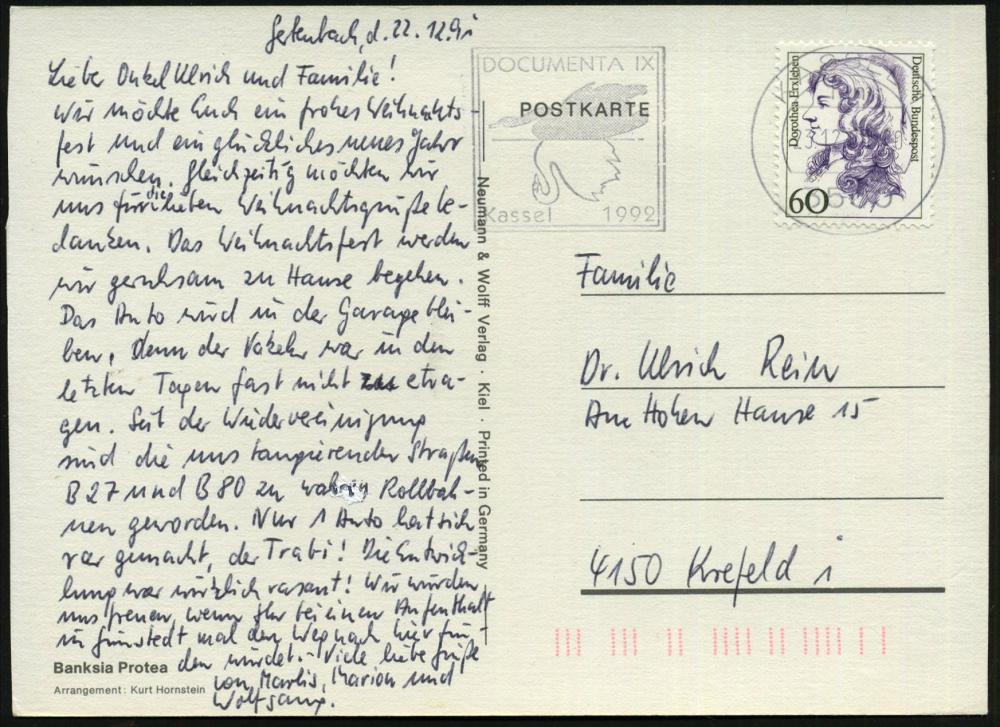 Gertenbach, d. 22. 12. 91
Lieber Onkel Ulrich und Familie!
Wir möchte Euch ein frohes Weihnachts-
fest und ein glückliches neues Jahr
wünschen. Gleichzeitig möchten wir
uns für die lieben Weihnachtsgrüße be-
danken. Das Weihnachtsfest werden
wir geruhsam zu Hause begehen.
Das Auto wird in der Garage blei-
ben, denn der Verkehr war in den
letzten Tagen fast nicht zu ertra-
gen. Seit der Wiedervereinigung
sind die uns tangierenden Straßen
B 27 und B 80 zu wahren Rollbah-
nen geworden. Nur 1 Auto hat sich
rar gemacht, der Trabi! Die Entwick-
lung war wirklich rasant! Wir würden
uns freuen, wenn Ihr bei einem Aufenthalt
in mal den Weg nach hier fin-
den würdet. Viele liebe Grüße
von Marlis, Marion und
Wolfgang.
Banksia Protea
Arrangement: Kurt Hornstein
Neumann & Wolff Verlag · Kiel · Printed in Germany
DOCUMENTA IX
POSTKARTE
Kassel 1992
Dorothea Erxleben
Deutsche Bundespost
60
Familie
Dr. Ulrich Rein
Am Hohen Hause 15
4150 Krefeld 1